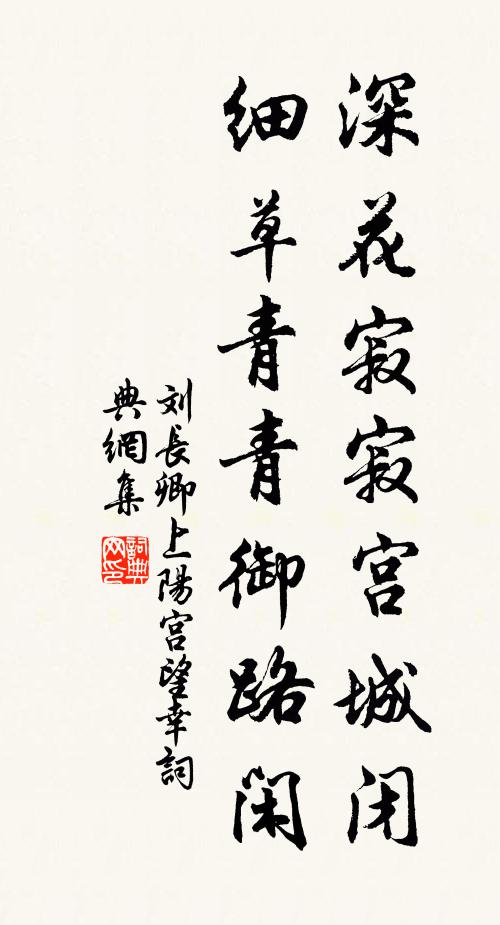 深花寂寂宫城闭
细草青青御路闲
刘長卿上陽宫望幸詞
典網集
詞典
网印